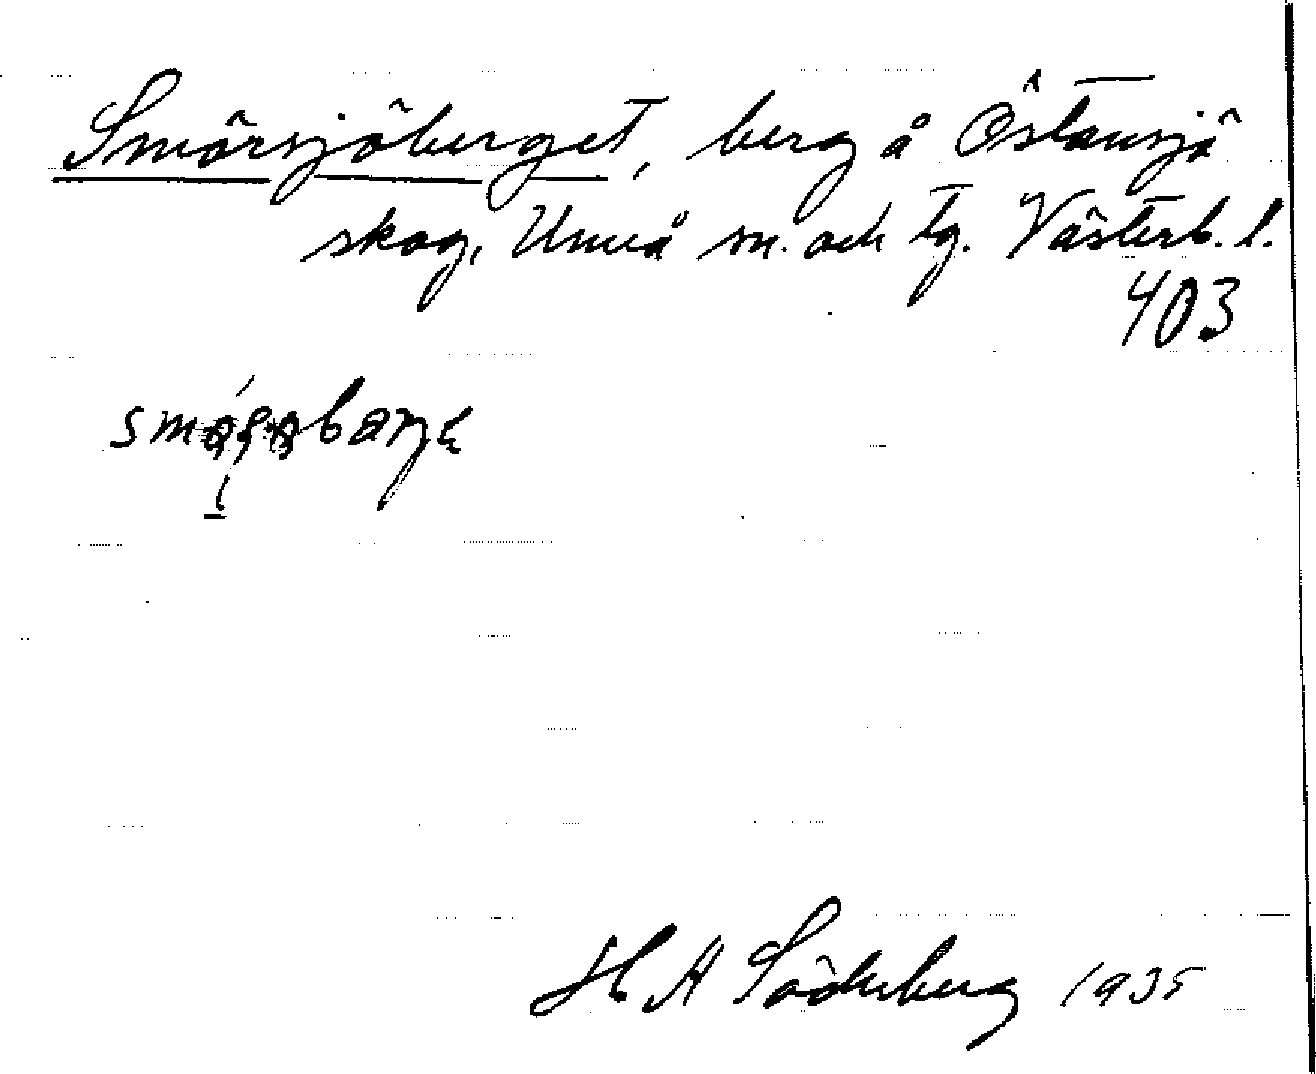 Smörsjöberget, berg å Östansjö
skog, Umeå sn. och tg. Västerb. l.
403
H A Söderberg 1935